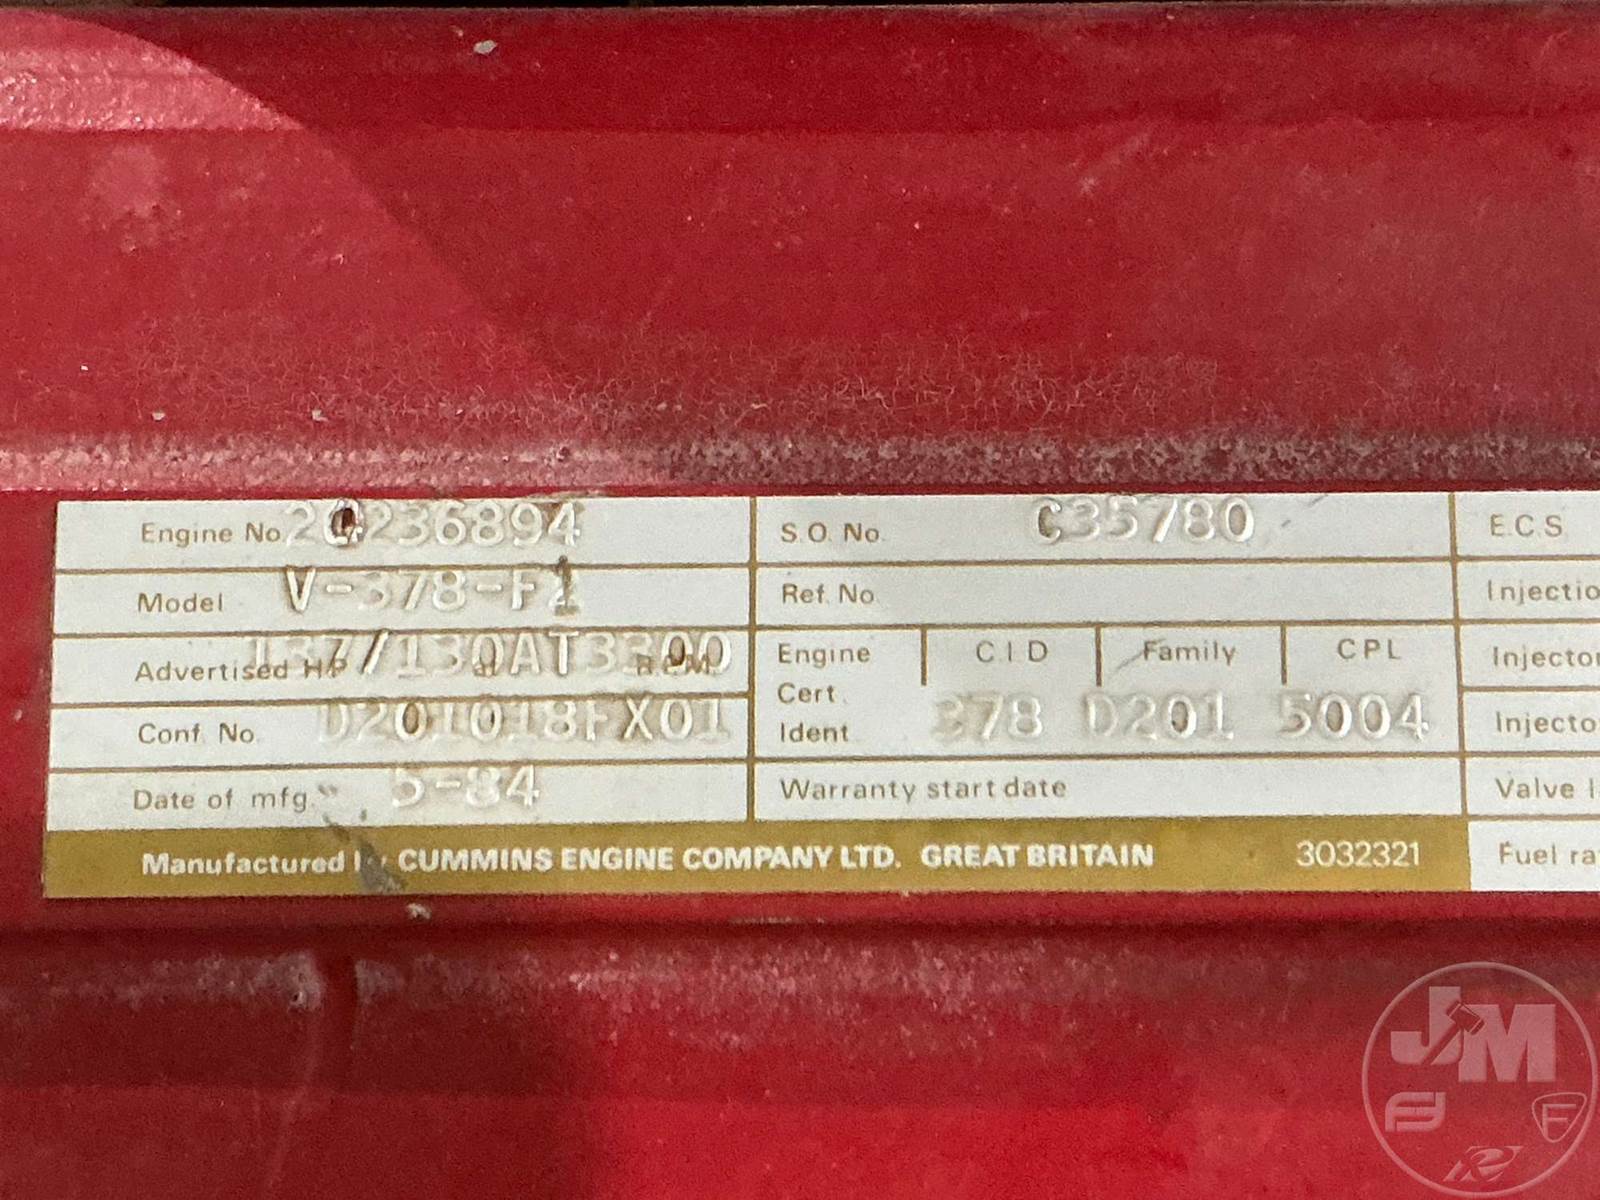 Engine No. 20236894 S.O. No. C35780 E.C.S
Model V-378-F2 Ref. No. Injectio
Advertised HP 137/130AT3300 at R.P.M. Engine C.I.D Family CPL Injector
Cert.
Conf. No. D201018FX01 Ident. 378 D201 5004 Injecto
Date of mfg. 5-84 Warranty start date Valve l
Manufactured by CUMMINS ENGINE COMPANY LTD. GREAT BRITAIN 3032321 Fuel ra
JM